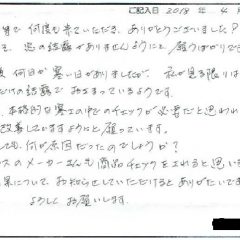 ご記入日 2018年 4月
まで何度も来ていただき、ありがとうございました?
も、窓の結露がありませんようにと、願うばかりで
何日か寒い日がありましたが、私が見る限りは
だけの結露でおさまっているようです。
本格的な寒さの中でのチェックが必要だと思われ
改善していますようにと願っています。
しても、何が原因だったのでしょうか?
スのメーカーさんも商品チェックをされると思いま
果について、お知らせしていただけるとありがたいです
よろしくお願いします。